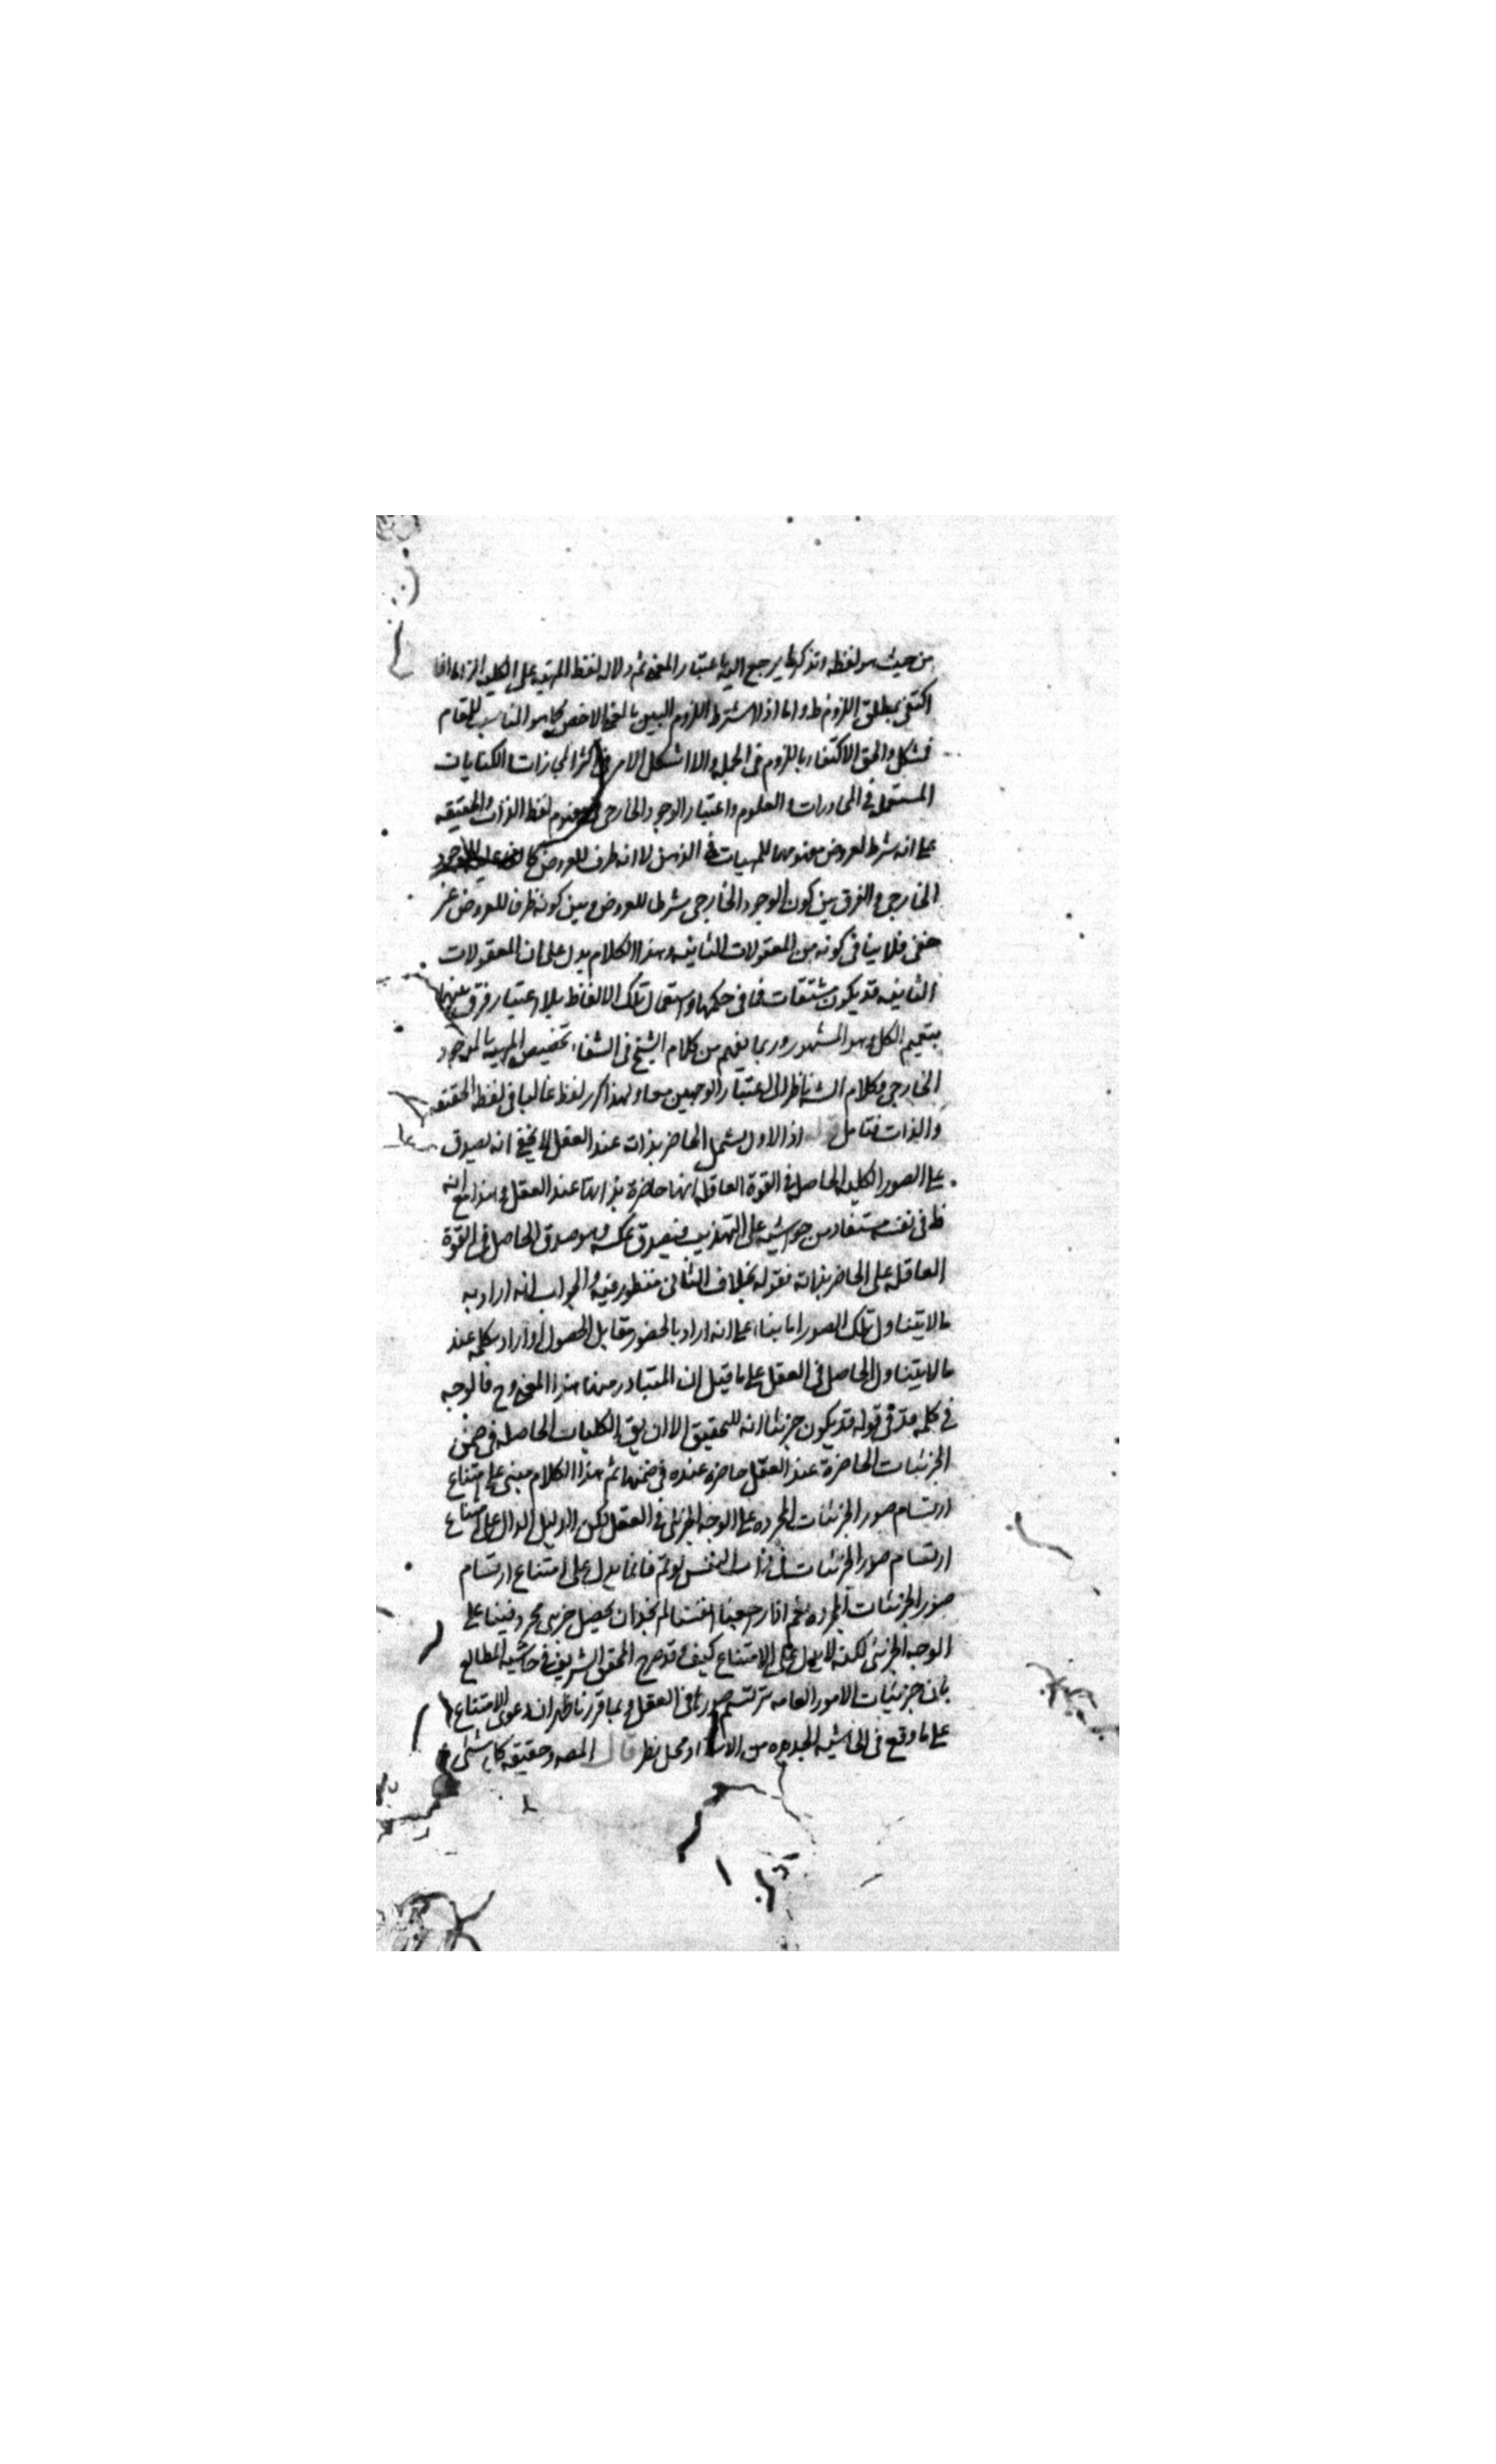 من حيث هو لفظه وتذكرها يرجع اليه باعتبار المعنى ثم دلالة لفظ المهية على الكلية التزاما اذا
اكتفى بمطلق اللزوم ظ واما اذا اشترط اللزوم البين بالمعنى الاخص كما هو المناسب للمقام
فمشكل والحق الاكتفاء باللزوم فى الجملة والا اشكل الامر فى اكثر المجازات والكنايات
المستعملة فى المحاورات والعلوم واعتبار الوجود الخارجى فى مفهوم لفظ الذات والحقيقه
على انه شرط لعروض مفهومهما للمهيات فى الذهن لا انه ظرف للعروض كما
الخارجى والفرق بين كون الوجود الخارجى شرطا للعروض وبين كونه ظرفا للعروض غير
خفى فلا ينافى كونه من المعقولات الثانيه وهذا الكلام يدل على ان المعقولات
الثانيه قد يكون مشتقات فما فى حكمها واستعمال تلك الالفاظ بلا اعتبار فرق بينها
بتعميم الكل هو المشهور وربما يفهم من كلام الشيخ فى الشفاء تخصيص المهية بالموجود
الخارجى وكلام الش ناظر الى اعتبار الوجهين معا ولهذا كرر لفظ غالبا فى لفظ الحقيقه
والذات فتامل قوله اذ الاول يشمل الحاضر بذاته عند العقل لا يخفى انه يصدق
على الصور الكلية الحاصلة فى القوة العاقلة انها حاضرة بذاتها عند العقل وهذا مع انه
ظ فى نفسه مستفاد من حواشيه على التهذيب فيصدق عكسه وهو صدق الحاصل فى القوة
العاقلة على الحاضر بذاته فقوله بخلاف الثانى منظور فيه والجواب انه اراد به
ما لا يتناول تلك الصور اما بناء على انه اراد بالحضور مقابل الحصول او اراد بكلمه عند
ما لا يتناول الحاصل فى العقل على ما قيل ان المتبادر منها هذا المعنى وح فالوجه
فى كلمه قد فى قوله قد يكون جزئيا انه للتحقيق الا ان يق الكليات الحاصلة فى ضمن
الجزئيات الحاضرة عند العقل حاضره عنده فى ضمنها ثم هذا الكلام مبنى على امتناع
ارتسام صور الجزئيات المجرده على الوجه الجزئى فى العقل لكن الدليل الدال على امتناع
ارتسام صور الجزئيات فى ذات النفس لو تم فانما يدل على امتناع ارتسام
صور الجزئيات المجرده نعم اذا رجعنا انفسنا لم نجد ان يحصل جزئى مجرد فينا على
الوجه الجزئى لكنه لا يدل على الامتناع كيف وقد صرح المحقق الشريف فى حاشية المطالع
بان جزئيات الامور العامه ترتسم صورها فى العقل وبما قررنا ظهر ان دعوى الامتناع
على ما وقع فى الحاشيه الجديده من الاستاد محل نظر قال المصه وحقيقه كل شئ